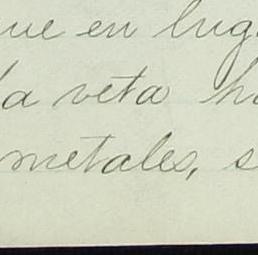 ue en lug
la veta h
metales, s